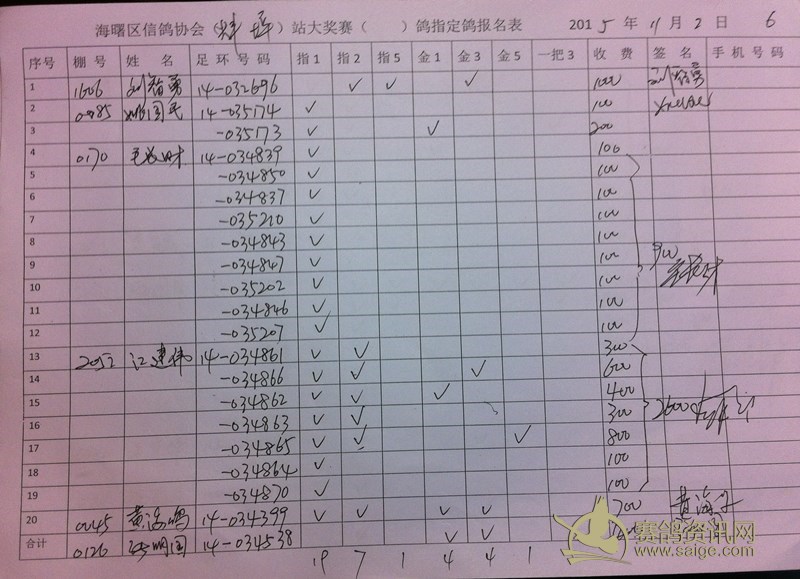 海曙区信鸽协会（ ）站大奖赛（ ）鸽指定鸽报名表 2015 年 11 月 2 日 6
序号 棚号 姓名 足环号码 指1 指2 指5 金1 金3 一把3 收费 签名 手机号码
1 1606 14-032696 ✓ ✓ ✓ 1000
2 0985 国民 14-035174 ✓ 100
3 -035173 ✓ ✓ 200
4 0170 14-034839 ✓ 100
5 -034850 ✓ 100
6 -034837 ✓ 100
7 -035210 ✓ 100
8 -034843 ✓ 100
9 -034847 ✓ 100 900
10 -035202 ✓ 100
11 -034846 ✓ 100
12 -035207 ✓ 100
13 2052 江建伟 14-034861 ✓ ✓ 300
14 -034866 ✓ ✓ ✓ 600
15 -034862 ✓ ✓ ✓ 400
16 -034863 ✓ ✓ 300 2600
17 -034865 ✓ ✓ ✓ 800
18 -034864 ✓ 100
19 -034870 ✓ 100
20 0045 黄海鸣 14-034399 ✓ ✓ ✓ ✓ 700
合计 0126 明国 14-034538 ✓ ✓
19 7 1 4 4 1
赛鸽资讯网
www.saige.com